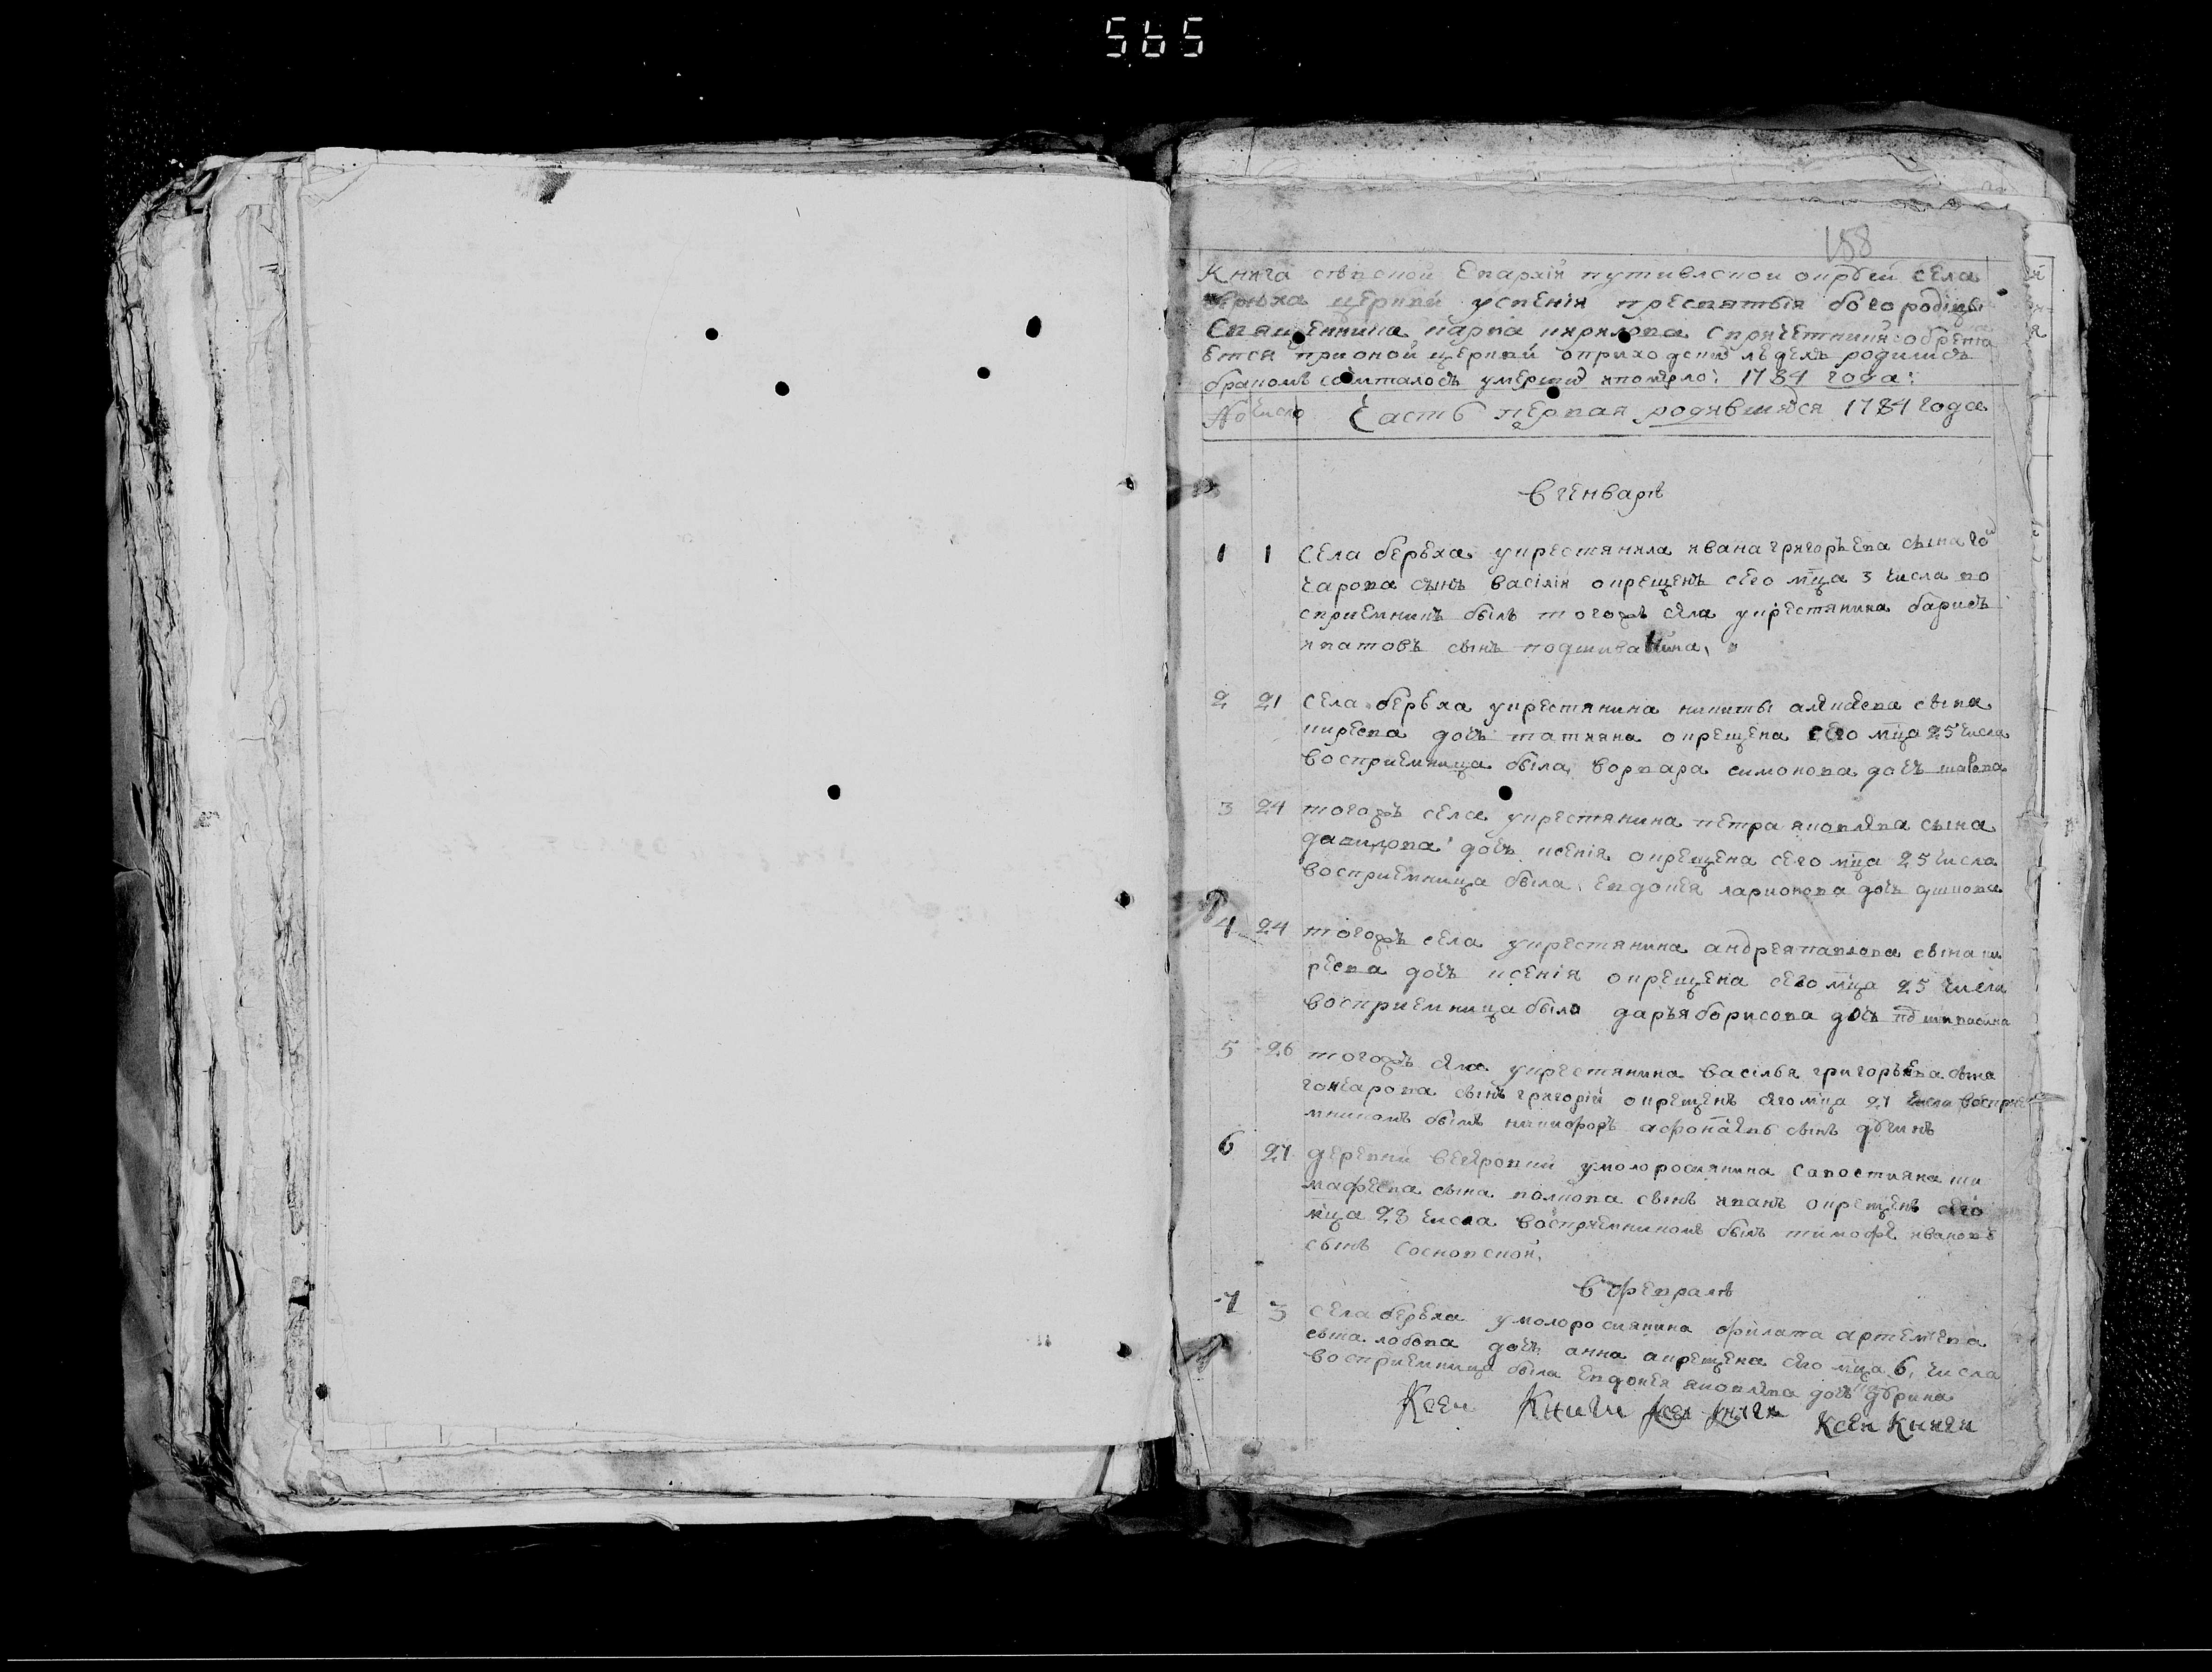 565
158
Книга сѣвской Епархіи путивлской округи села
берюха церкви успенія пресвятыя богородицы
Священника карпа кирилова спричетники обрета
ется прионой церкви оприходских людехъ родилися
бракомъ сочиталось умерших ипомерло: 1784 года:
№ число Часть первая родившихся 1784 года
Вгенварѣ
1 1 Села берюха укрестянина ивана григорьева сына го
чарова сынъ василій окрещенъ сего мца 3 числа во
сприемникъ былъ тогожъ села укрестянина барисъ
ипатовъ сынъ
2 21 Села берюха укрестянина никиты алексеева сына
кирѣева дочь татияна окрещена сего мца 25 числа
восприемница была варвара симонова дочь
3 24 тогожъ села укрестянина петра яковлева сына
давидова дочь ксенія окрещена сего мца 25 числа
восприемница была Евдокея ларионова дочь
4 24 тогожъ села укрестянина андрея павлова сына ки
рѣева дочь ксенія окрещена сего мца 25 числа
восприемница была дарья борисова дочь
5 26 тогожъ села укрестянина василья григорьева сына
гончарова сынъ григорій окрещенъ сего мца 27 числа восприе
мникомъ былъ никифоръ афонасевъ сынъ
6 27 деревни умолоросиянина савостияна ти
мафѣева сына волкова сынъ иванъ окрещенъ сего
мца 28 числа восприемникомъ былъ тимофе ивановъ
сынъ сосновской
Вфевралѣ
7 3 Села берюха умолоросиянина филата артемева
сына лобова дочь анна окрещена сего мца 6 числа
восприемница была Евдокея яковлева дочь
Ксеи Книги Ксеи Книги Ксеи Книги